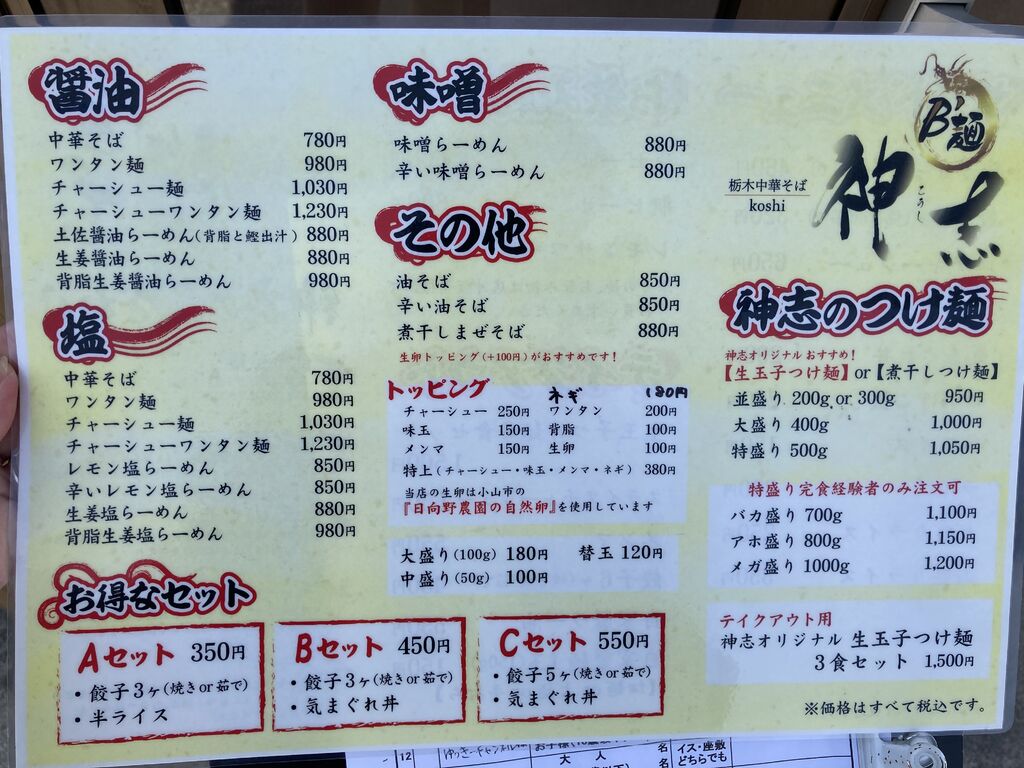 醤油
中華そば 780円
ワンタン麺 980円
チャーシュー麺 1,030円
チャーシューワンタン麺 1,230円
土佐醤油らーめん(背脂と鰹出汁) 880円
生姜醤油らーめん 880円
背脂生姜醤油らーめん 980円
塩
中華そば 780円
ワンタン麺 980円
チャーシュー麺 1,030円
チャーシューワンタン麺 1,230円
レモン塩らーめん 850円
辛いレモン塩らーめん 850円
生姜塩らーめん 880円
背脂生姜塩らーめん 980円
味噌
味噌らーめん 880円
辛い味噌らーめん 880円
その他
油そば 850円
辛い油そば 850円
煮干しまぜそば 880円
生卵トッピング(+100円)がおすすめです!
トッピング
ネギ 180円
チャーシュー 250円 ワンタン 200円
味玉 150円 背脂 100円
メンマ 150円 生卵 100円
特上(チャーシュー・味玉・メンマ・ネギ) 380円
当店の生卵は小山市の
『日向野農園の自然卵』を使用しています
大盛り(100g) 180円 替玉 120円
中盛り(50g) 100円
B'麺
栃木中華そば
koshi
神志
こうし
神志のつけ麺
神志オリジナル おすすめ!
【生玉子つけ麺】or【煮干しつけ麺】
並盛り 200g or 300g 950円
大盛り 400g 1,000円
特盛り 500g 1,050円
特盛り完食経験者のみ注文可
バカ盛り 700g 1,100円
アホ盛り 800g 1,150円
メガ盛り 1000g 1,200円
テイクアウト用
神志オリジナル 生玉子つけ麺
3食セット 1,500円
※価格はすべて税込です。
お得なセット
Aセット 350円
・餃子3ヶ(焼きor茹で)
・半ライス
Bセット 450円
・餃子3ヶ(焼きor茹で)
・気まぐれ丼
Cセット 550円
・餃子5ヶ(焼きor茹で)
・気まぐれ丼
12
大人 名
名 イス・座敷
どちらでも